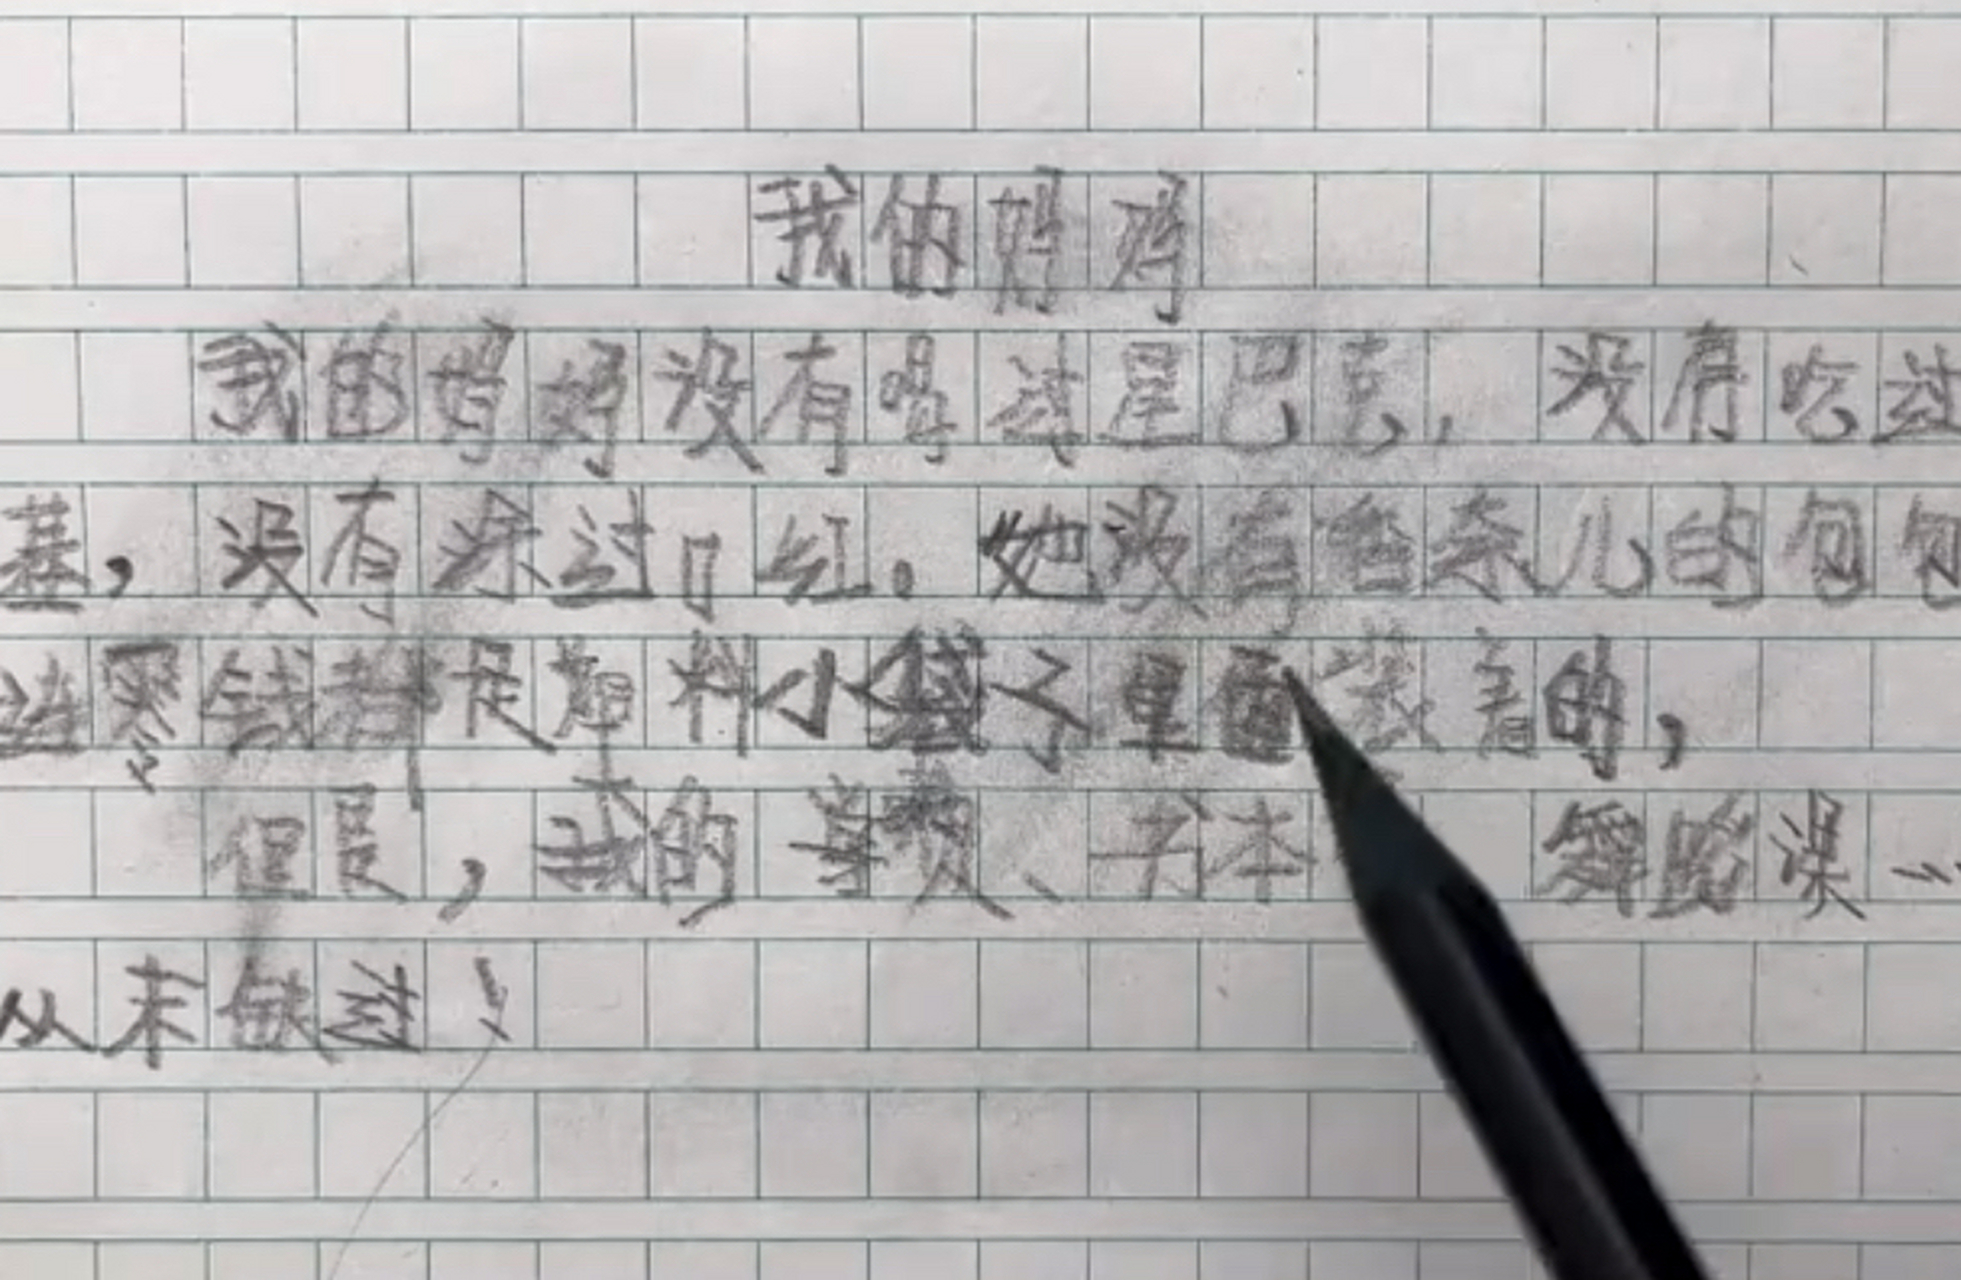 我的妈妈
我的妈妈没有喝过星巴克，没有吃过
基，没有涂过口红。她没有香奈儿的包包
零钱都是塑料小袋子里面装着的，
但是，我的学费、书本 舞蹈课…
从未缺过！